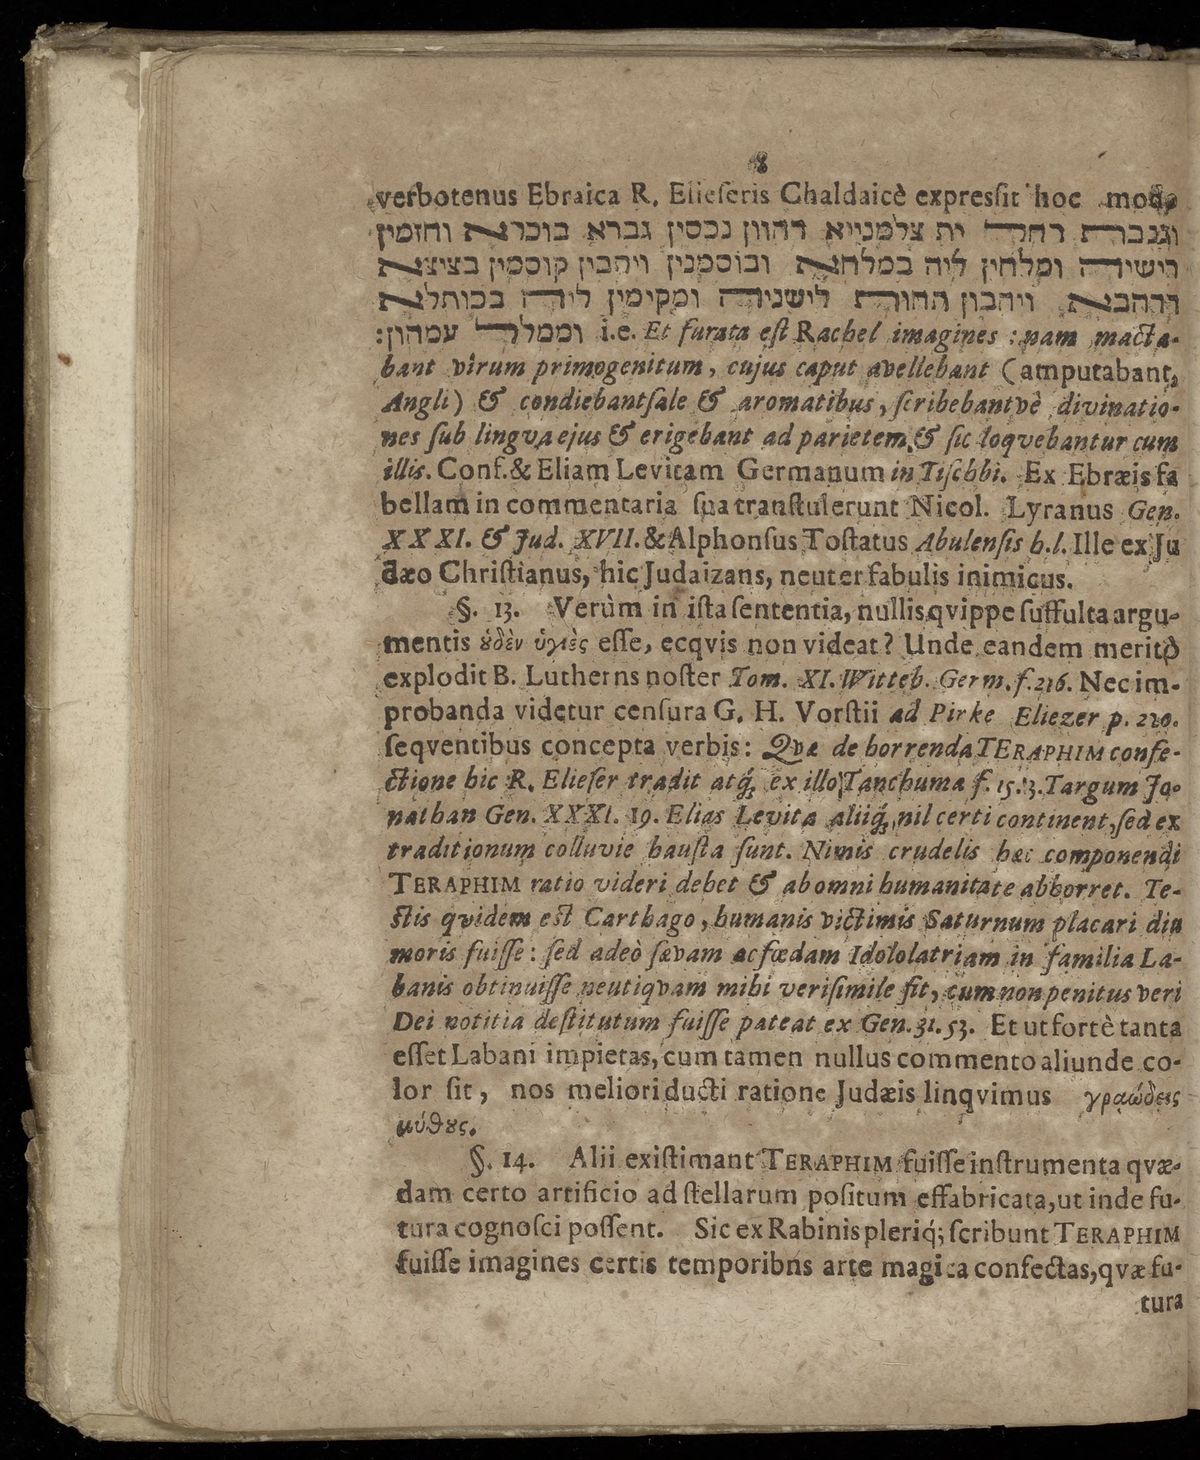 8
verbotenus Ebraica R. Elieſeris Chaldaicè expreſſit hoc modo
וגנברת רחל ית צלמנייא דהוון נכסין גברא בוכרא וחזמין
רישיה ומלחין ליה במלחא ובוסמנין ויהבין קוסמין בציצא
דדהבא ויהבון תחות לישניה ומקימין ליה בכותלא
וממלל עמהון: i.e. Et furata eſt Rachel imagines : nam macta-
bant virum primogenitum, cujus caput avellebant (amputabant,
Angli) & condiebantſale & aromatibus, ſcribebantvè divinatio-
nes ſub lingva ejus & erigebant ad parietem & ſic loqvebantur cum
illis. Conf. & Eliam Levitam Germanum in Tiſchbi. Ex Ebræis fa
bellam in commentaria ſua tranſtulerunt Nicol. Lyranus Gen.
XXXI. & Jud. XVII. & Alphonſus Toſtatus Abulenſis h.l. Ille ex Ju
dæo Chriſtianus, hic Judaizans, neuter fabulis inimicus.
§. 13. Verùm in iſta ſententia, nullis qvippe ſuffulta argu-
mentis ȣ̓δὲν ὑγιὲς eſſe, ecqvis non videat? Unde eandem meritò
explodit B. Lutherns noſter Tom. XI. Witteb. Germ. f. 216. Nec im-
probanda videtur cenſura G. H. Vorſtii ad Pirke Eliezer p. 210.
ſeqventibus concepta verbis: Qvæ de horrenda TERAPHIM confe-
ctione hic R. Elieſer tradit atq́; ex illo Tanchuma f. 15. 3. Targum Jo-
nathan Gen. XXXI. 19. Elias Levita aliiq́; nil certi continent, ſed ex
traditionum colluvie hauſta ſunt. Nimis crudelis hæc componendi
TERAPHIM ratio videri debet & ab omni humanitate abhorret. Te-
ſtis qvidem eſt Carthago, humanis victimis Saturnum placari diu
moris fuiſſe : ſed adeò ſævam ac fœdam Idololatriam in familia La-
banis obtinuiſſe neutiqvam mihi veriſimile fit, cum non penitus veri
Dei notitia deſtitutum fuiſſe pateat ex Gen. 31. 53. Et ut fortè tanta
eſſet Labani impietas, cum tamen nullus commento aliunde co-
lor ſit, nos meliori ducti ratione Judæis linqvimus γραώδεις
μύθȣς.
§. 14. Alii exiſtimant TERAPHIM fuiſſe inſtrumenta qvæ-
dam certo artificio ad ſtellarum poſitum effabricata, ut inde fu-
tura cognoſci poſſent. Sic ex Rabinis pleriq́; ſcribunt TERAPHIM
fuiſſe imagines certis temporibus arte magica confectas, qvæ fu-
tura